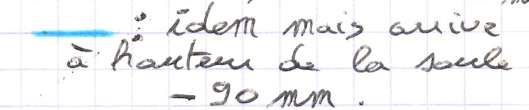 : idem mais arrive
à hauteur de la saule
- 90 mm.